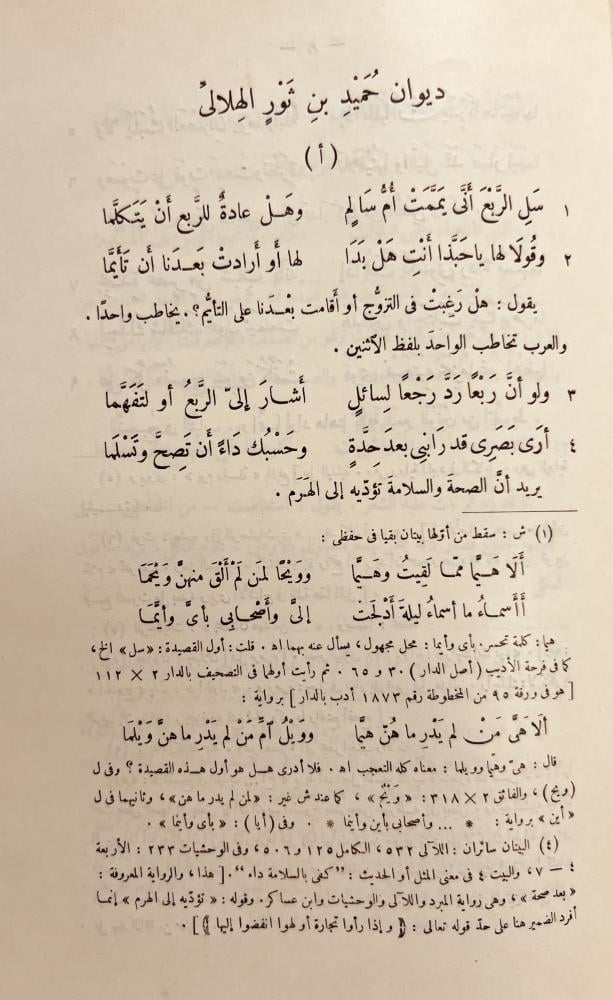 ديوان حُمَيْدِ بنِ ثَوْرٍ الهِلالىّ
( أ )
١ سَلِ الرَّبْعَ أَنَّى يَمَّمَتْ أُمُّ سَالِمِ وهَــلْ عادةٌ للرَّبعِ أَنْ يَتَكلَّما
٢ وقُولَا لها يا حَبَّذا أَنْتِ هَلْ بَدَا لها أَو أَرادتْ بَعـدَنا أَن تَأَيَّما
يقول : هل رَغِبتْ فى التزوُّج أو أقامت بعْـدَنا على التأيُّم؟ . يخاطب واحدًا .
والعرب تخاطب الواحدَ بلفظ الآثنين .
٣ ولو أنَّ رَبْعًا رَدَّ رَجْعًا لِسائلٍ أَشـارَ إلىّ الرَّبعُ أو لتَفَهَّما
٤ أرَى بَصَرِى قد رَابَنِى بعدَ حِدَّةٍ وحَسْبُك دَاءً أَن تَصِحَّ وتَسْلَما
يريد أنَّ الصحةَ والسلامةَ تؤدّيه إلى الهَرَم .
(١) ش : سقط من أوّلها بيتان بقيا فى حفظى :
أَلَا هَــيَّما ممّا لَقِيتُ وهَــيَّما ووَيْحًا لمَن لَمْ أَلْقَ منهنَّ وَيْحَمَا
أَأَسمـاءُ ما أسماءُ ليلةَ أَدْلَجَتْ إلىَّ وأَصْحابِى بأَىَّ وأَيَّمَا
هيما: كلمة تحسر. بأى وأيما : محل مجهول، يسأل عنه بهما اه . قلت : أول القصيدة : «سل» الخ،
كما فى فرحة الأديب (أصل الدار) ٣٠ و ٦٥ . ثم رأيت أولهما فى التصحيف بالدار ٢ × ١١٢
[هو فى ورقة ٩٥ من المخطوطة رقم ١٨٧٣ أدب بالدار] برواية :
ألا هَىَّ مَنْ لم يَدْرِ ما هُنّ هيَّما ووَيْلُ آمِّ مَنْ لم يَدْرِ ما هنَّ وَيْلَما
قال : هىّ وهيّما وويلما : معناه كله التعجب اه . فلا أدرى هــل هو أول هــذه القصيدة ؟ وفى ل
(ويح)، والفائق ٢ × ٣١٨ : «وَيْحٌ»، كما عند ش غير : «لمن لم يدر ما هن»، وثانيهما فى ل
«أين» برواية : * ... وأصحابى بأين وأينما * . وفى (أيا) : «بأى وأينما» .
(٤) البيتان سائران : اللآلى ٥٣٢، الكامل ١٢٥ و ٥٠٦، وفى الوحشيات ٢٣٣ : الأربعة
٤ ــ ٧، والبيت ٤ فى معنى المثل أو الحديث : "كفى بالسلامة داء". [هذا، والرواية المعروفة :
«بعد صحة»، وهى رواية المبرد واللآلى والوحشيات وابن عساكر. وقوله : «تؤدّيه إلى الهرم» إنمـا
أفرد الضمير هنا على حدّ قوله تعالى : ﴿ وإذا رأوا تجارة أو لهوا انفضوا إليها ﴾] .